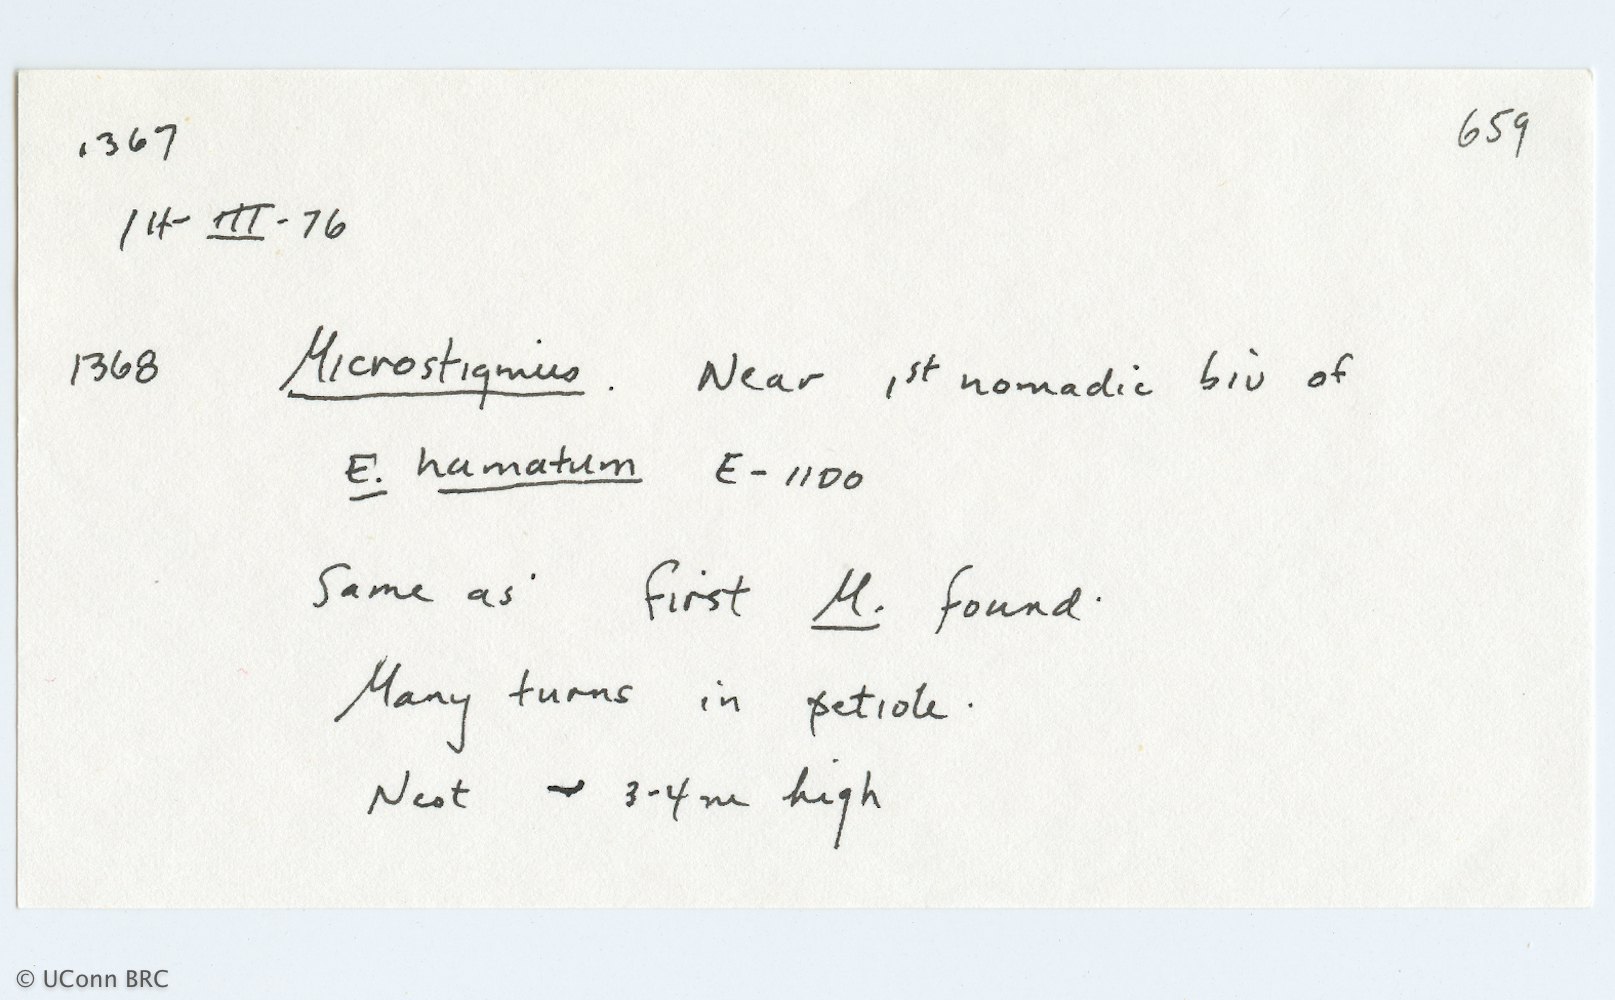 1367 659
14-III-76
1368 Microstigmus. Near 1st nomadic biv of
E. hamatum E-1100
Same as first M. found.
Many turns in petiole.
Nest ~ 3-4m high
© UConn BRC